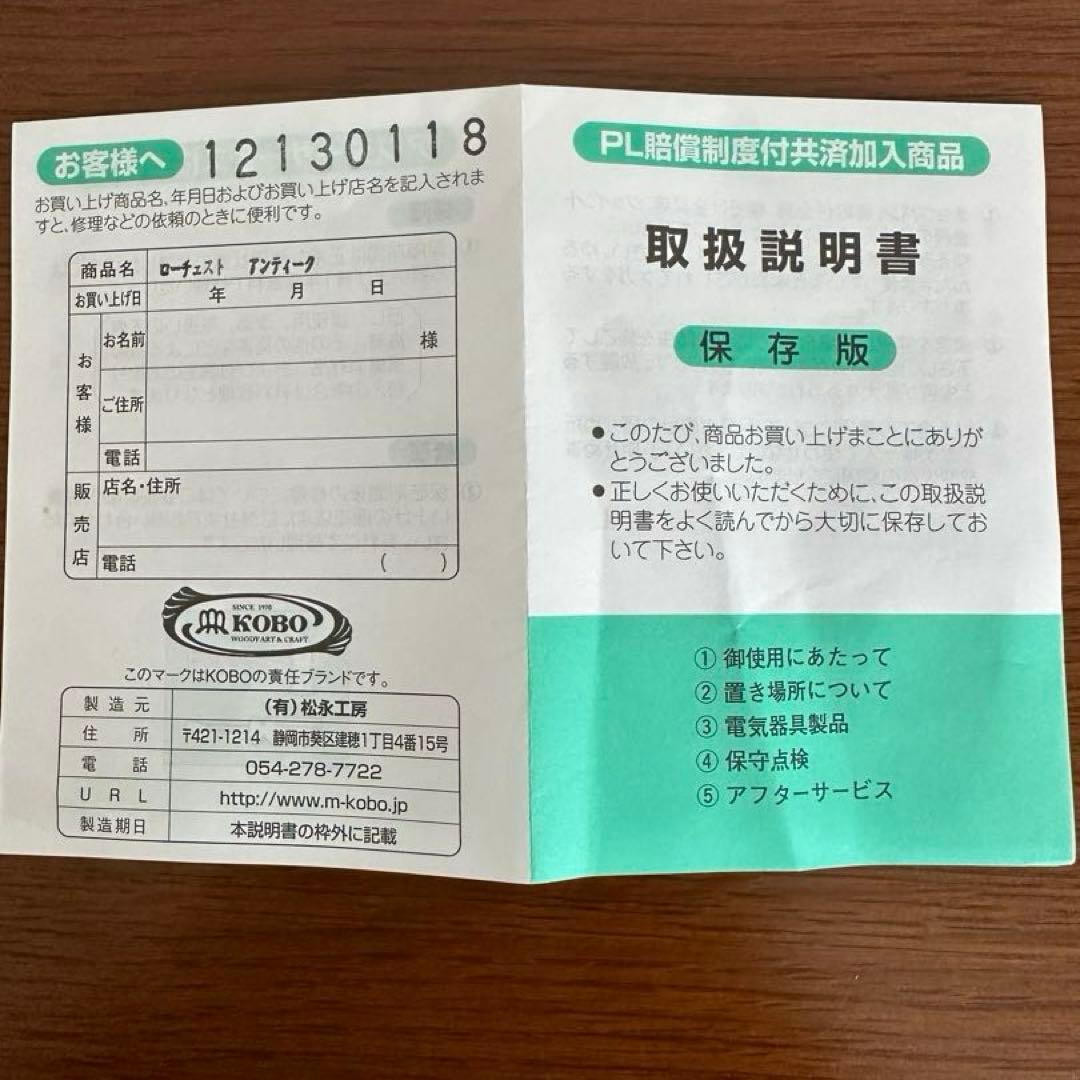 お客様へ 12130118
お買い上げ商品名、年月日およびお買い上げ店名を記入されま
すと、修理などの依頼のときに便利です。
商品名 ローチェスト アンティーク
お買い上げ日 年 月 日
お客様
お名前 様
ご住所
電話
販売店
店名・住所
電話 ( )
SINCE 1970
KOBO
WOODY ART & CRAFT
このマークはKOBOの責任ブランドです。
製造元 (有)松永工房
住所 〒421-1214 静岡市葵区建穂1丁目4番15号
電話 054-278-7722
URL http://www.m-kobo.jp
製造期日 本説明書の枠外に記載
PL賠償制度付共済加入商品
取扱説明書
保存版
●このたび、商品お買い上げまことにありが
とうございました。
●正しくお使いいただくために、この取扱説
明書をよく読んでから大切に保存してお
いて下さい。
① 御使用にあたって
② 置き場所について
③ 電気器具製品
④ 保守点検
⑤ アフターサービス